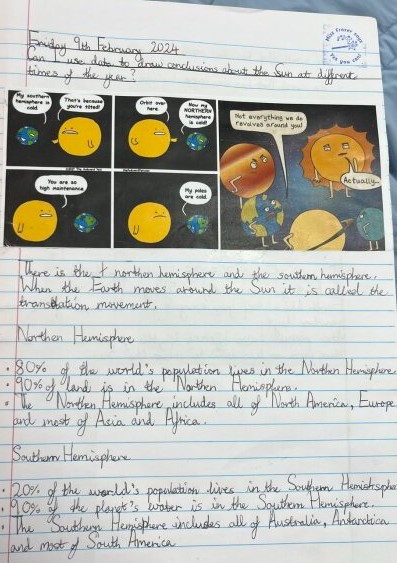 Friday 9th February 2024
Can I use data to draw conclusions about the Sun at different
times of the year?
Miss Fraser says
Yes you can!
My southern
hemisphere is
cold.
That's because
you're tilted!
Orbit over
here.
Now my
NORTHERN
hemisphere
is cold!
You are so
high maintenance
My poles
are cold.
Not everything we do
revolves around you!
Actually...
There is the northen hemisphere and the southern hemisphere.
When the Earth moves around the Sun it is called the
translation movement.
Northen Hemisphere
• 80% of the world's population lives in the Northen Hemisphere
• 90% of land is in the Northen Hemisphere.
• The Northen Hemisphere includes all of North America, Europe
and most of Asia and Africa.
Southern Hemisphere
• 20% of the world's population lives in the Southern Hemisphere
• 90% of the planet's water is in the Southern Hemisphere.
• The Southern Hemisphere includes all of Australia, Antarctica
and most of South America